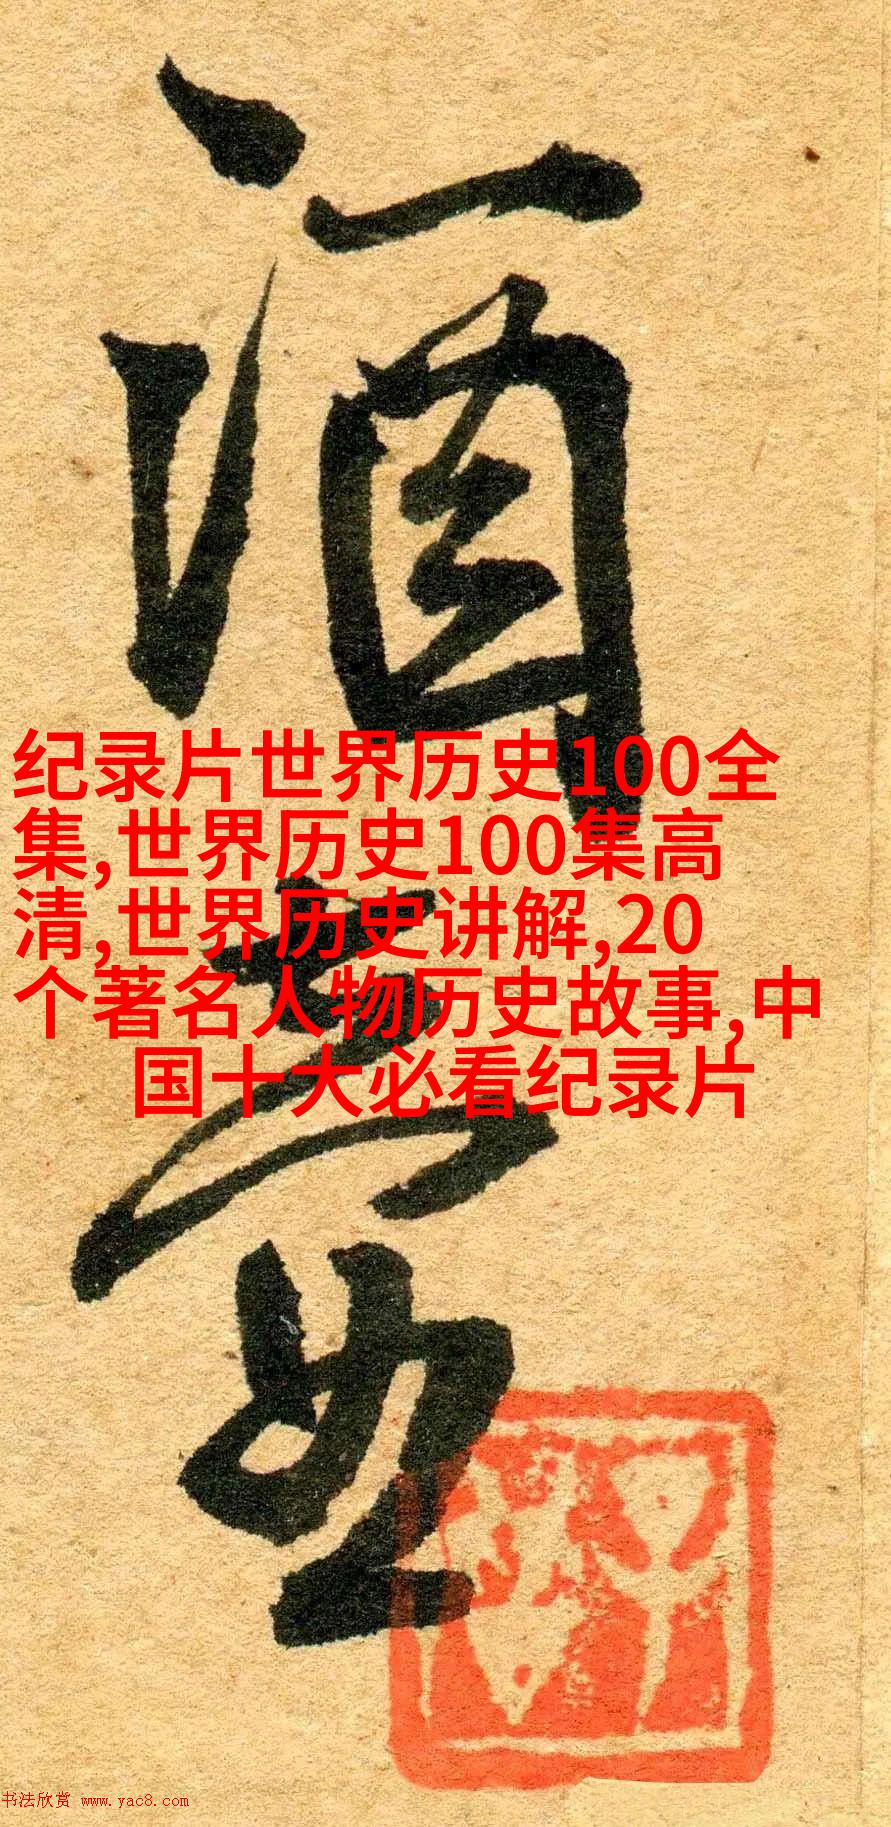 酒
纪录片世界历史100全
集,世界历史100集高
清,世界历史讲解,20
个著名人物历史故事,中
国十大必看纪录片
书法欣赏 www.yac8.com